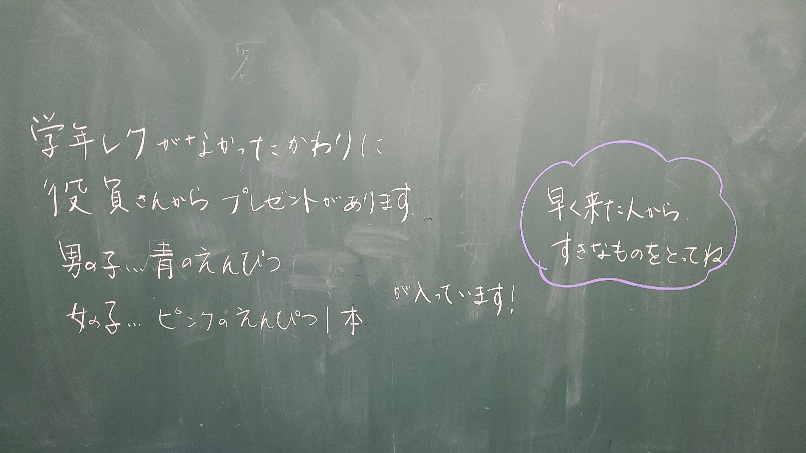 学年レクがなかったかわりに
役員さんからプレゼントがあります
男の子…青のえんぴつ
女の子…ピンクのえんぴつ1本
が入っています!
早く来た人から
すきなものをとってね